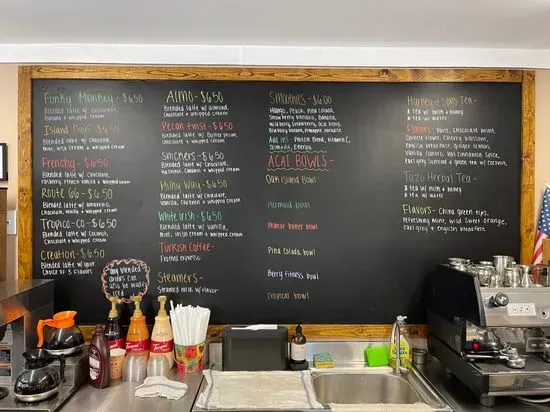 Funky Monkey - $6.50
Blended latte w/ chocolate,
banana + whipped cream
Island Days - $6.50
Blended latte w/
mint, Irish cream + whipped cream
Frenchy - $6.50
Blended latte w/ chocolate,
raspberry, French vanilla + whipped cream
Route 66 - $6.50
Blended latte w/ chocolate,
amaretto, + whipped cream
Tropico-Co - $6.50
Blended latte w/ coconut,
chocolate + whipped cream
Creation - $6.50
Blended latte w/ your
choice of 3 flavors
Any blended
drinks can
also be made
iced
Almo - $6.50
Blended latte w/ almond,
chocolate + whipped cream
Pecan twist - $6.50
Blended latte w/ butter pecan,
chocolate + whipped cream
Snichers - $6.50
Blended latte w/ chocolate,
hazelnut, caramel + whipped cream
Milky Way - $6.50
Blended latte w/ chocolate,
vanilla, caramel + whipped cream
White Irish - $6.50
Blended latte w/ vanilla,
mint, Irish cream + whipped cream
Turkish Coffee -
Frothed espresso
Steamers -
Steamed milk w/ flavor
Smoothies - $6.00
Mango, Peach, Pina colada,
Strawberry banana, Banana,
Wildberry, Strawberry, acai berry,
Blackberry banana, pineapple paradise
Add ins: Protein Blend, Vitamin C,
Energy
ACAI BOWLS -
Oak Island Bowl
Mermaid bowl
Peanut butter bowl
Pina Colada bowl
Berry fitness bowl
Tropical bowl
Harney & Sons Tea -
$ tea w/ milk + honey
$ tea w/ water
Flavors: Paris, Chocolate mint,
Earl grey supreme + green tea w/ coconut,
Tazo Herbal Tea -
$ tea w/ milk + honey
$ tea w/ water
Flavors - China green tips,
refreshing mint, wild sweet orange,
earl grey + english breakfast
Torani